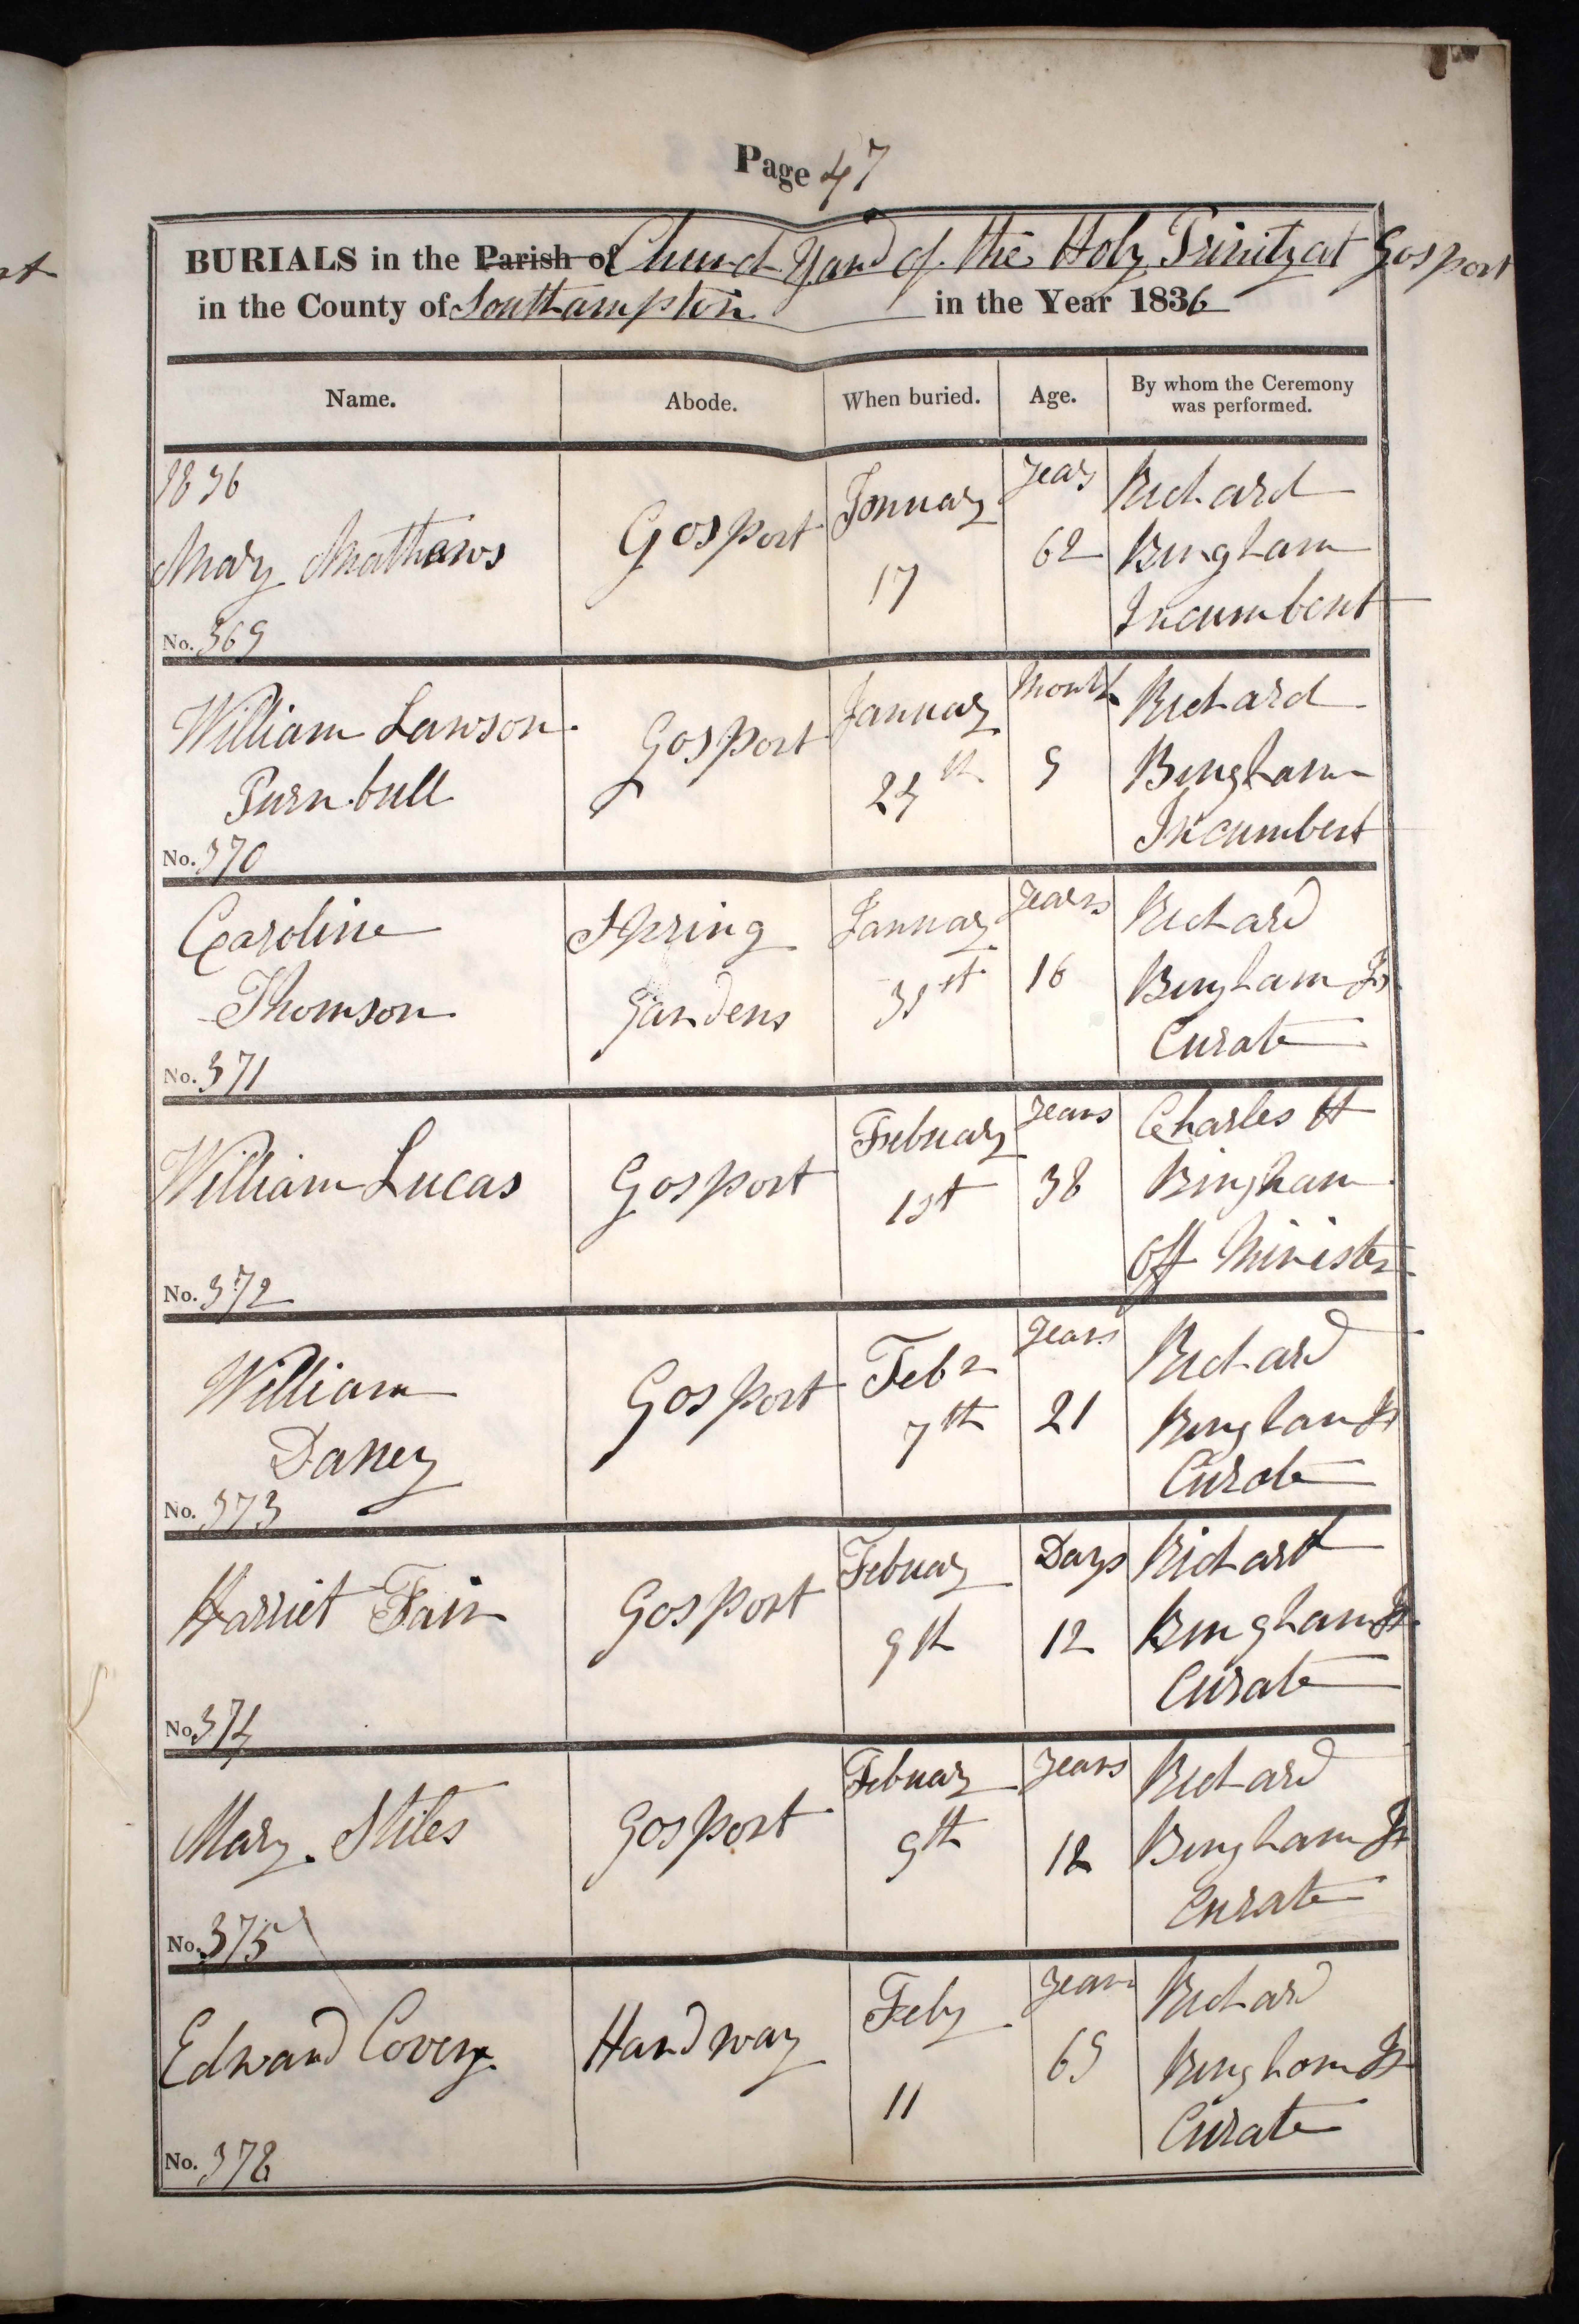 Page 47
BURIALS in the Parish of Church Yard of the Holy Trinity at Gosport
in the County of Southampton in the Year 1836
Name. Abode. When buried. Age. By whom the Ceremony was performed.
1836
Mary Mathews Gosport January 17 Years 62 Richard Bingham Incumbent
No. 369
William Lawson Turnbull Gosport January 24th Month 9 Richard Bingham Incumbent
No. 370
Caroline Thomson Spring Gardens January 31st Years 16 Richard Bingham Jr Curate
No. 371
William Lucas Gosport Febuary 1st Years 38 Charles H Bingham Off Minister
No. 372
William Gosport Feby 7th Years 21 Richard Bingham Jr Curate
No. 373
Harriet Fair Gosport Febuary 9th Days 12 Richard Bingham Jr Curate
No. 374
Mary Stiles Gosport Febuary 9th Years 12 Richard Bingham Jr Curate
No. 375
Edward Hardway Feby 11 Years 69 Richard Bingham Jr Curate
No. 378